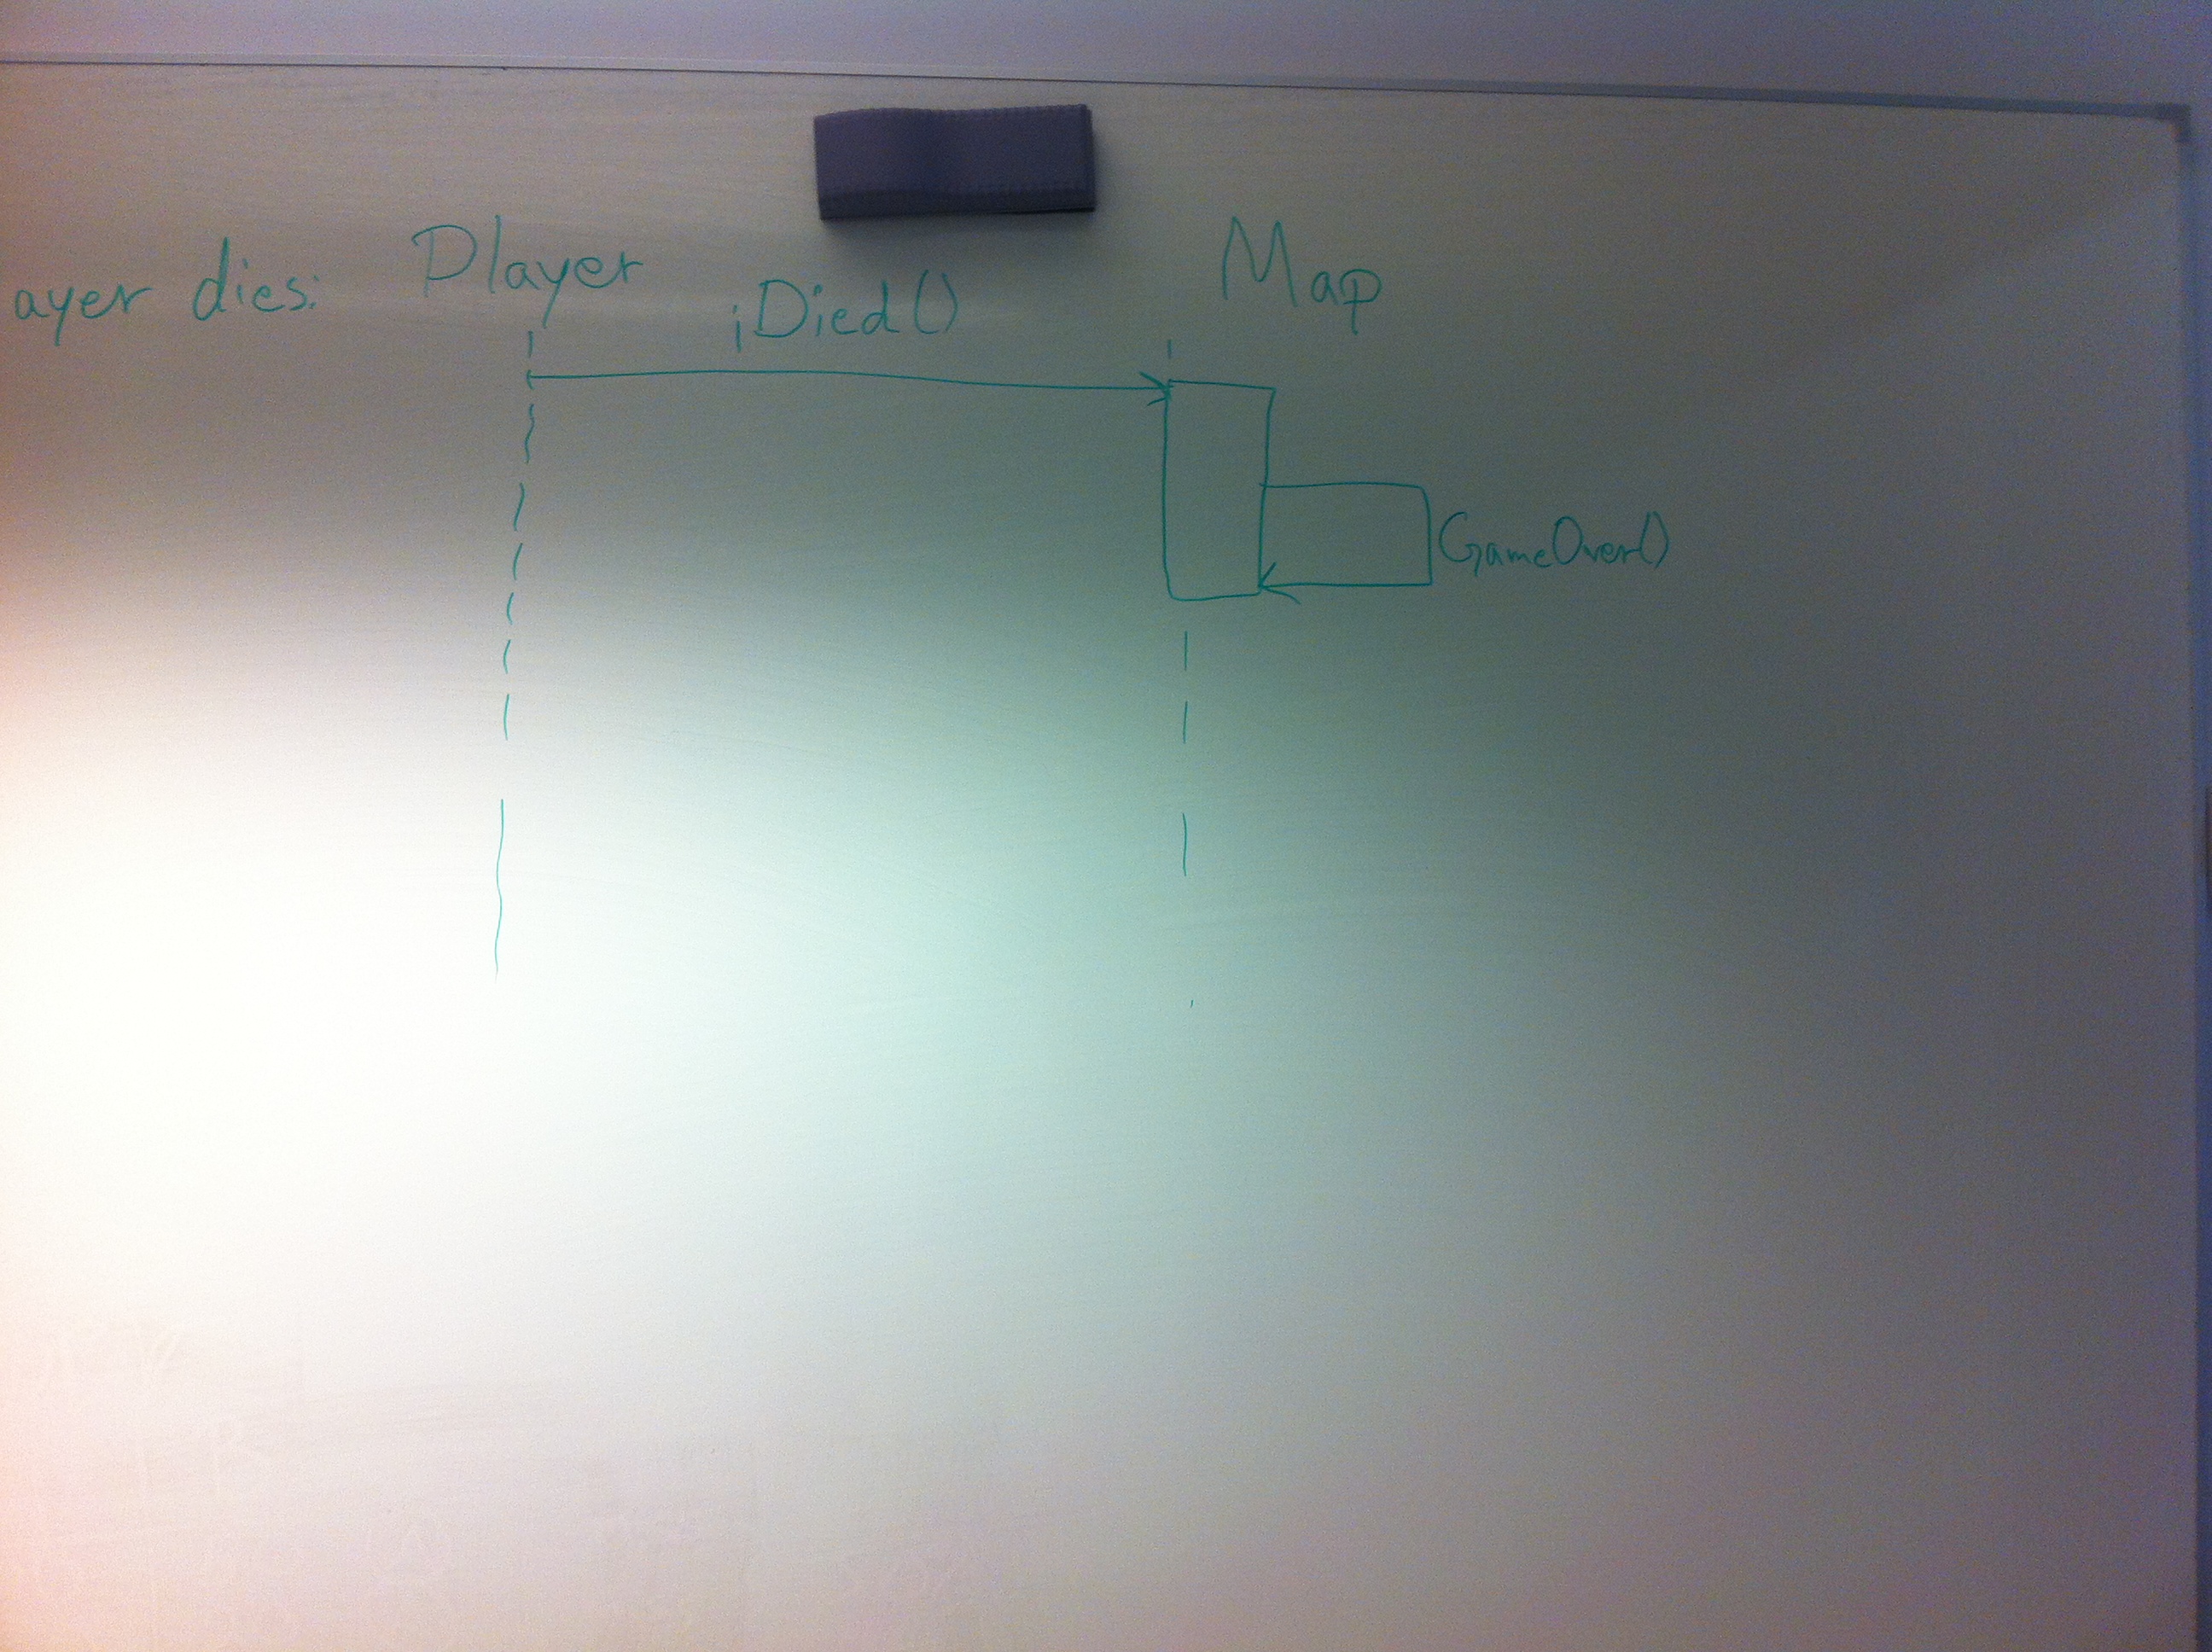 ayer dies:
Player
Map
iDied()
GameOver()